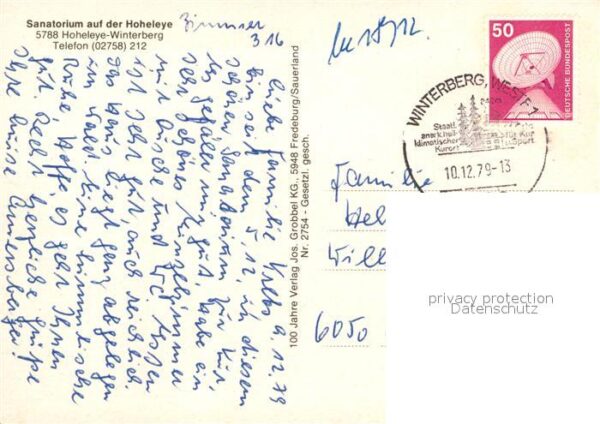 Sanatorium auf der Hoheleye
5788 Hoheleye-Winterberg
Telefon (02758) 212
Zimmer
316
Liebe Familie 9.12.79
bin seit dem 5.12. in diesem
schönen Sanatorium zur Kur.
Es gefällt mir gut. Habe ein
sehr schönes Einzelzimmer
mit Dusche und WC. Essen
ist sehr gut, auch reichlich.
Das Haus liegt ganz abgelegen
im Wald. Eine himmlische
Ruhe. Hoffe es geht Ihnen
gut. Recht herzliche Grüße
Ihre Luise
100 Jahre Verlag Jos. Grobbel KG., 5948 Fredeburg/Sauerland
Nr. 2754 - Gesetzl. gesch.
50
DEUTSCHE BUNDESPOST
WINTERBERG, WESTF 1
Staatl.
anerk. heil-
klimatischer
Kurort
für Kur
Sport
10.12.79-13
Familie
Hel
Will
6050
privacy protection
Datenschutz